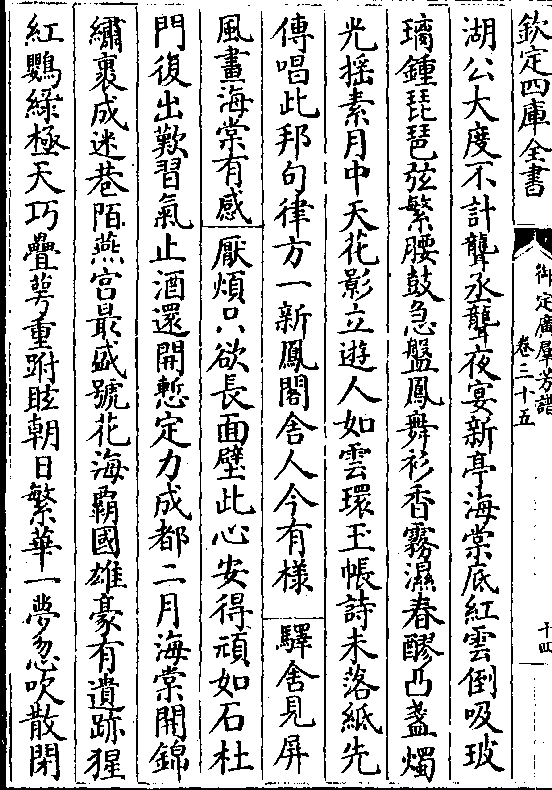 欽定四庫全書
御定廣羣芳譜
卷三十五
十四
湖公大度不計聾丞聾夜宴新亭海棠底紅雲倒吸玻
璃鍾琵琶弦繁腰鼓急盤鳳舞衫香霧濕春醪凸盞燭
光摇素月中天花影立遊人如雲環玉帳詩未落紙先
傳唱此邦句律方一新鳳閣舍人今有樣 驛舍見屏
風畫海棠有感 厭煩只欲長面壁此心安得頑如石杜
門復出歎習氣止酒還開慙定力成都二月海棠開錦
繡裹成迷巷陌燕宫最盛號花海霸國雄豪有遺跡猩
紅鸚綠極天巧疊萼重跗眩朝日繁華一夢忽吹散閉